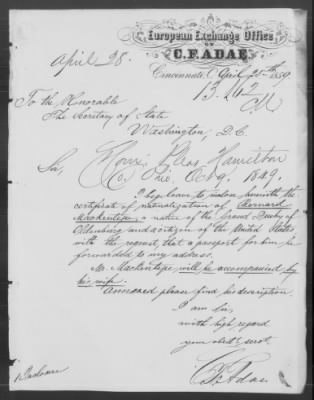 European Exchange Office
OF
C. F. ADAE,
April 28.
Cincinnati, O. April 25th 1859.
13.262
To the Honorable
The Secretary of State
Washington, D.C.
Sir,
Hamilton
Co. Oct 9. 1849.
I beg leave to inclose herewith the
certificate of naturalization of Bernard
Mackentepe, a native of the Grand Duchy of
Oldenburg and citizen of the United States
with the request, that a passport for him be
forwarded to my address.
Mr. Mackentepe will be accompanied by
his wife.
Annexed please find his description.
I am Sir,
with high regard
your obdt servt.
C. F. Adae
1 Inclosure